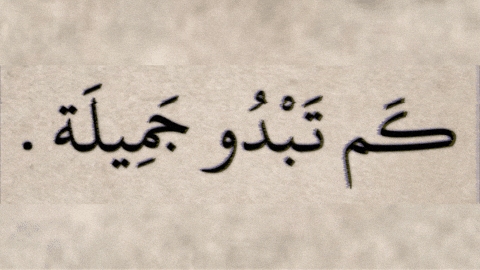 كَم تَبْدُو جَمِيلَة .